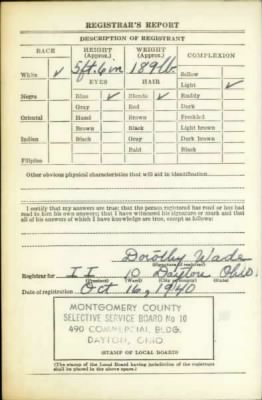 REGISTRAR'S REPORT
DESCRIPTION OF REGISTRANT
RACE HEIGHT (Approx.) WEIGHT (Approx.) COMPLEXION
White ✓ 5 ft. 6 in 189 lb. Sallow
EYES HAIR Light ✓
Negro Blue ✓ Blonde ✓ Ruddy
Gray Red Dark
Oriental Hazel Brown Freckled
Brown Black Light brown
Indian Black Gray Dark brown
Bald Black
Filipino
Other obvious physical characteristics that will aid in identification
I certify that my answers are true; that the person registered has read or has had
read to him his own answers; that I have witnessed his signature or mark and that
all of his answers of which I have knowledge are true, except as follows:
Dorothy Wade
(Signature of registrar)
Registrar for II 10 Dayton Ohio
(Precinct) (Ward) (City or county) (State)
Date of registration Oct 16, 1940
MONTGOMERY COUNTY
SELECTIVE SERVICE BOARD No 10
490 COMMERCIAL BLDG.
DAYTON, OHIO
STAMP OF LOCAL BOARD
(The stamp of the Local Board having jurisdiction of the registrant
shall be placed in the above space.)